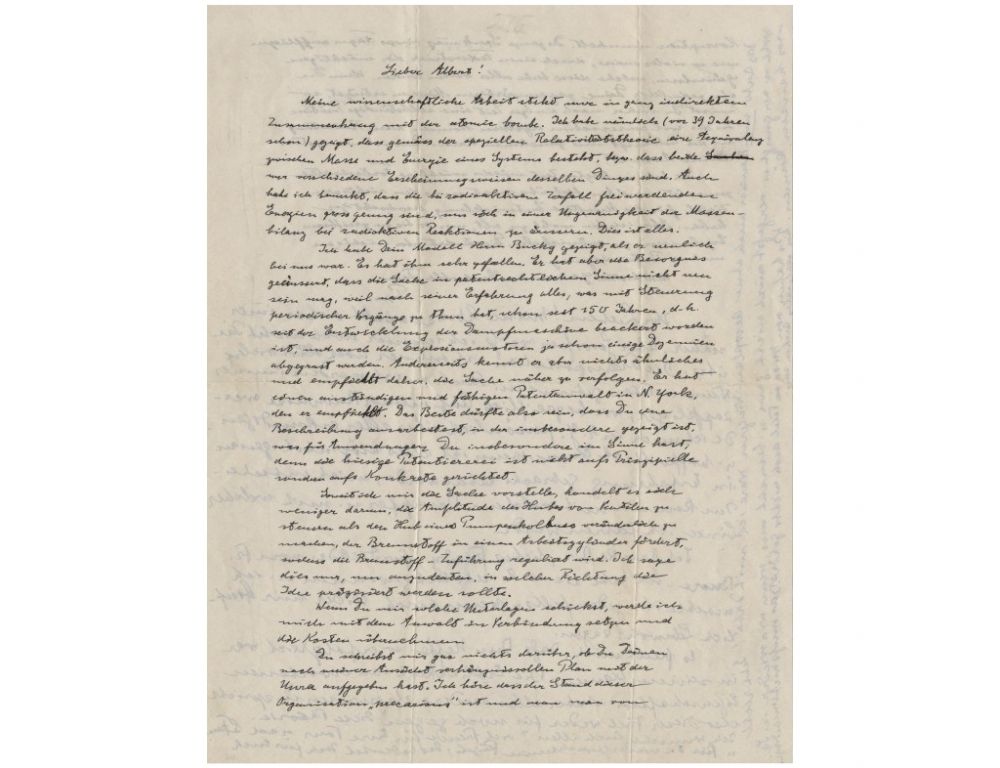 Lieber Albert!
Meine wissenschaftliche Arbeit steht nur in ganz indirektem
Zusammenhang mit der atomic bomb. Ich habe nämlich (vor 39 Jahren
schon) gezeigt, dass gemäss der speziellen Relativitätstheorie eine Aequivalenz
zwischen Masse und Energie eines Systems besteht, bezw. dass beide
nur verschiedene Erscheinungsweisen desselben Dinges sind. Auch
habe ich bemerkt, dass die bei radioaktivem Zerfall freiwerdenden
Energien gross genug sind, um sich in einer Ungenauigkeit der Massen-
bilanz bei radioktiven Reaktionen zu äussern. Dies ist alles.
Ich habe Dein Modell Herrn Bucky gezeigt, als er neulich
bei uns war. Es hat ihm sehr gefallen. Er hat aber die Besorgnis
geäussert, dass die Sache in patentrechtlichem Sinne nicht neu
sein mag, weil nach seiner Erfahrung alles, was mit Steuerung
periodischer Vorgänge zu thun hat, schon seit 150 Jahren, d.h.
seit der Entwicklung der Dampfmaschine beackert worden
ist, und auch die Explosionsmotoren ja schon einige Dezennien
abgegrast wurden. Andererseits kennt er aber nichts ähnliches
und empfiehlt daher, die Sache näher zu verfolgen. Er hat
einen anständigen und fähigen Patentanwalt in N. York,
den er empfiehlt. Das Beste dürfte also sein, dass Du eine
Beschreibung ausarbeitest, in der insbesondere gezeigt ist,
was für Anwendungen Du insbesondere im Sinne hast,
denn die hiesige Patentiererei ist nicht aufs Prinzipielle
sondern aufs Konkrete gerichtet.
Soweit ich mir die Sache vorstelle, handelt es sich
weniger darum, die Amplitude des Hubes von Ventilen zu
steuern als den Hub eines Pumpenkolbens veränderlich zu
machen, der Brennstoff in einen Arbeitszylinder fördert,
sodass die Brennstoff-Zuführung reguliert wird. Ich sage
dies nur, um anzudeuten, in welcher Richtung die
Idee präzisiert werden sollte.
Wenn Du mir solche Unterlagen schickst, werde ich
mich mit dem Anwalt in Verbindung setzen und
die Kosten übernehmen.
Du schreibst mir gar nichts darüber, ob Du Deinen
nach meiner Ansicht verhängnisvollen Plan mit der
aufgegeben hast. Ich höre dass der Stand dieser
Organisation „precarious" ist und man von